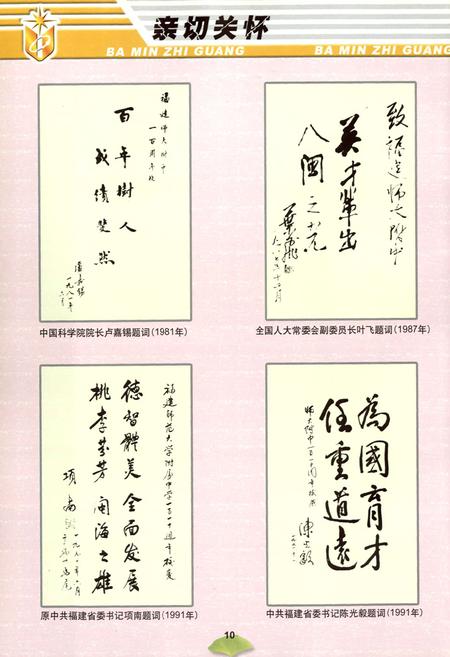 亲切关怀
BA MIN ZHI GUANG
BA MIN ZHI GUANG
福建师大附中
一百周年校
百年樹人
成績斐然
盧嘉錫
一九八一年
中国科学院院长卢嘉锡题词(1981年)
致福建师大附中
英才輩出
八闽之光
葉飛
全国人大常委会副委员长叶飞题词(1987年)
福建師范大学附属中学一百一十週年校慶
德智體美全面发展
桃李芬芳闽海之雄
项南
原中共福建省委书记项南题词(1991年)
師大附中一百一十周年校慶
為國育才
任重道遠
陳光毅
中共福建省委书记陈光毅题词(1991年)
10